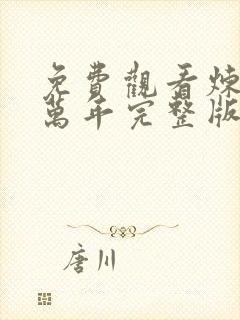 免費觀看煉
萬年完整版
唐川